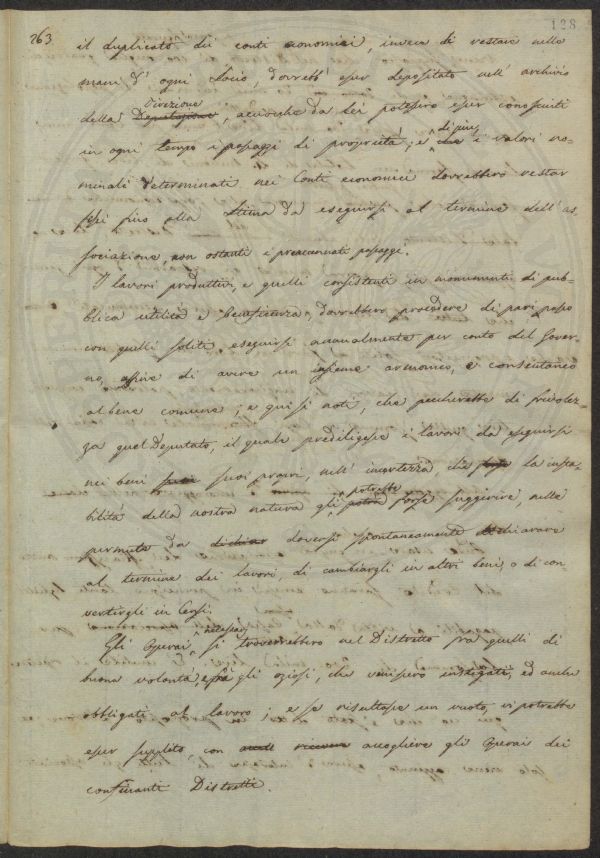 128
263
il duplicato dei conti economici, invece di restare nelle
mani d'ogni Socio, dovrebb'esser depositato nell'archivio
Direzione
della Deputazione, acciocché da lei potessero esser conosciuti
di più
in ogni tempo i passaggi di proprietà; e che i valori no-
minali determinati nei Conti economici dovrebbero restar
fissi fino alla Stima da eseguirsi al termine dell'as-
sociazione, non ostanti i preaccennati passaggi.
I lavori produttivi, e quelli consistenti in monumenti di pub-
blica utilità e beneficenza, dovrebbero procedere di pari passo
con quelli soliti eseguirsi annualmente per conto del Gover-
no, affine di avere un insieme armonico, e consentaneo
al bene comune; e qui si noti, che peccherebbe di frivolez-
za quel Deputato, il quale prediligesse i lavori da eseguirsi
nei beni suoi propri, nell'incertezza, che la insta-
potrebbe
bilità della nostra natura gli potrà forse suggerire, nelle
permute da doversi spontaneamente dichiarare
al termine dei lavori, di cambiargli in altri beni, o di con-
vertirgli in Censi.
necessarj
Gli Operai si troverebbero nel Distretto fra quelli di
buona volontà, e fra gli oziosi, che venissero instigati, ed anche
obbligati al lavoro; e se risultasse un vuoto, vi potrebbe
esser supplito, con accogliere gli Operai dei
confinanti Distretti.